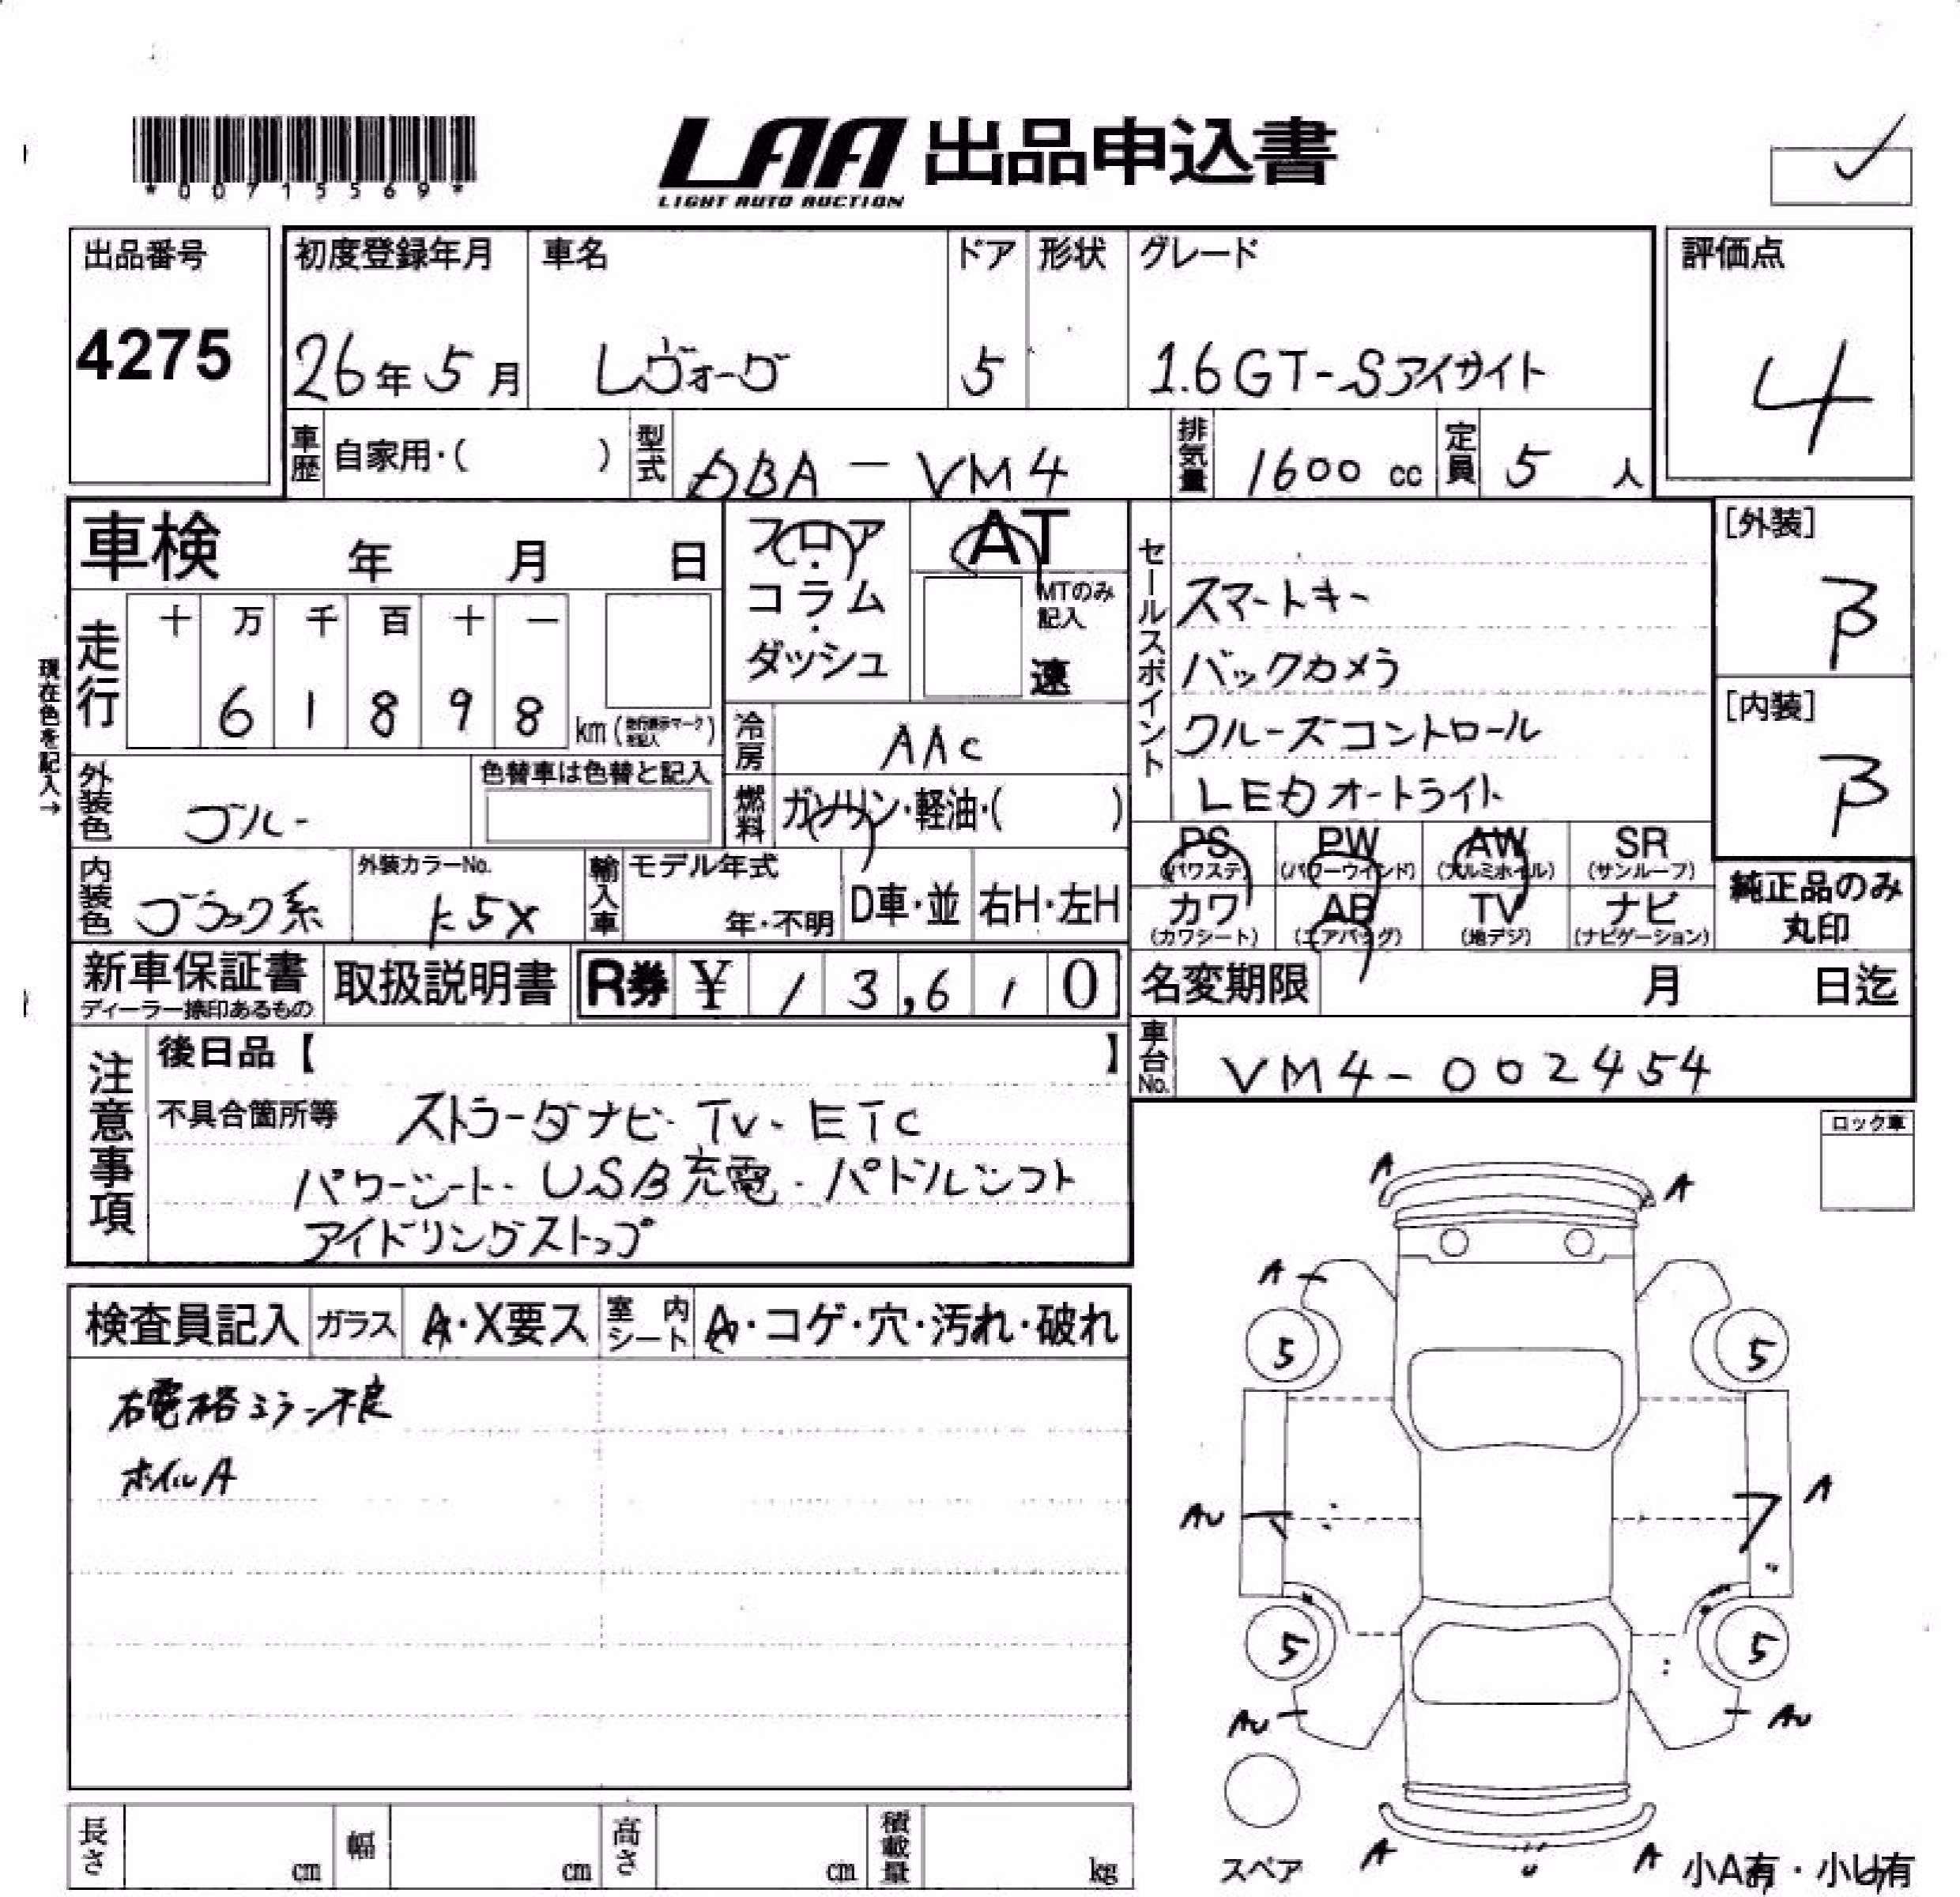 *00715569*
LAA 出品申込書
LIGHT AUTO AUCTION
出品番号
4275
初度登録年月
26年5月
車名
レヴォーグ
ドア
5
形状
グレード
1.6GT-Sアイサイト
評価点
4
車歴
自家用・( )
型式
DBA-VM4
排気量
1600cc
定員
5人
車検 年 月 日
フロア・コラム・ダッシュ
AT
MTのみ記入
速
セールスポイント
スマートキー
バックカメラ
クルーズコントロール
LEDオートライト
[外装]
B
[内装]
B
現在色を記入→
走行
十 万 千 百 十 一
6 1 8 9 8
km
冷房
AAC
外装色
ブルー
色替車は色替と記入
燃料
ガソリン・軽油・( )
PS (パワステ)
PW (パワーウインド)
AW (アルミホイル)
SR (サンルーフ)
カワ (カワシート)
AB (エアバッグ)
TV (地デジ)
ナビ (ナビゲーション)
純正品のみ丸印
内装色
ブラック系
外装カラーNo.
K5X
輸入車
モデル年式
年・不明
D車・並
右H・左H
新車保証書
ディーラー捺印あるもの
取扱説明書
R券 ¥ 13,610
名変期限 月 日迄
車台No.
VM4-002454
注意事項
後日品【 】
不具合箇所等
ストラーダナビ・TV・ETC
パワーシート・USB充電・パドルシフト
アイドリングストップ
ロック車
検査員記入
ガラス
A・X要ス
室内シート
A・コゲ・穴・汚れ・破れ
右電格ミラー不良
ホイルA
A
A
A
5
5
A
AU
5
5
AU
AU
スペア
A
U
A
小A有・小U有
長さ cm
幅 cm
高さ cm
積載量 kg